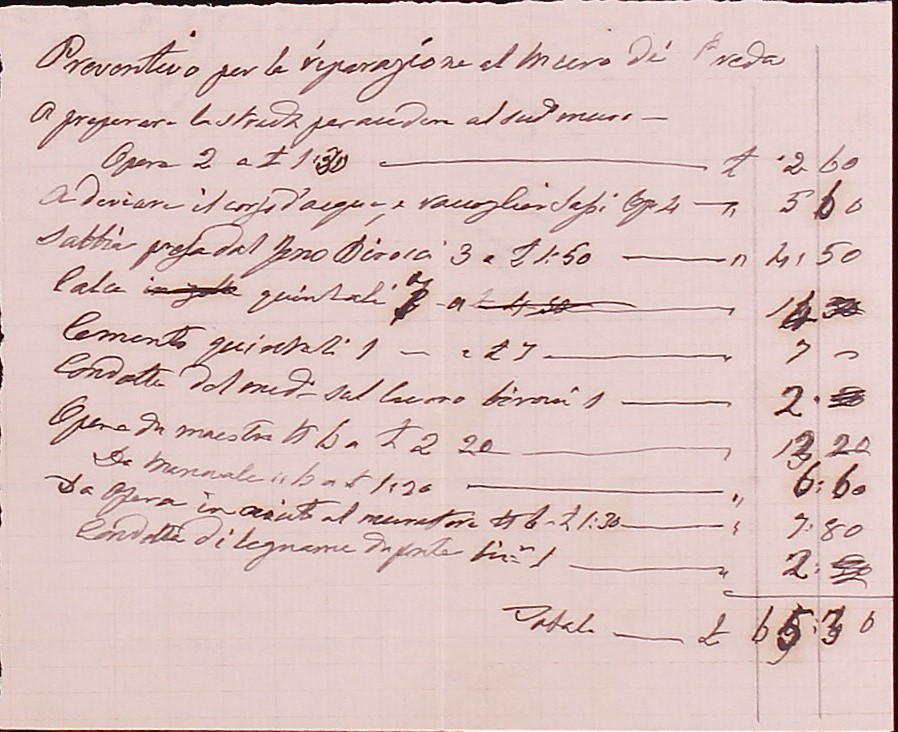 Preventivo per la riparazione al muro di Preda
A preparare la strada per accedere al sud. muro —
Opere 2 a £ 1:30 — £ 2 60
A deviare il corso d'acqua e raccoglier Sassi Op. 4 — " 5 60
Sabbia presa dal Birocci 3 a £ 1:50 — " 4, 50
Calce quintali a —
Cemento quintali 1 — a £ 7 — " 7 –
Condotta del med. sul birocci 1 — 2.
Opere da maestro N 6 a £ 2 20 — " 13 20
Da manuale " 6 a £ — " 6:60
Da opera in aiuto al muratore N 6 a £ 1:30 — " 7:80
Condotta di legname da ponte bir. 1 — " 2:
Totale — £ 65: